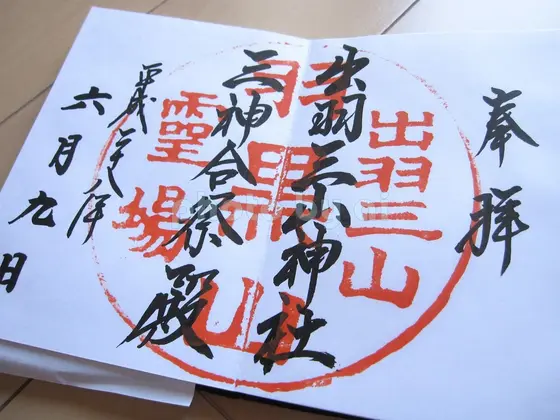 奉拝
出羽三山神社
三神合祭殿
平成二十八年
六月九日
出羽三山
月山
霊場